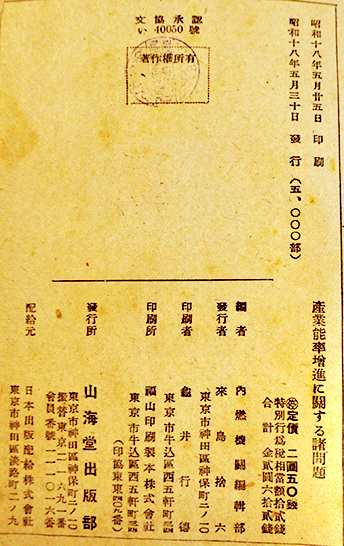 文協承認
い 40050 號
著作權所有
昭和十八年五月廿五日 印刷
昭和十八年五月三十日 發行（五、〇〇〇部）
産業能率増進に關する諸問題
㊝定價 二圓五〇錢
特別行爲税相當額拾貳錢
合計 金貳圓六拾貳錢
編者 內燃機關編輯部
東京市神田區神保町二ノ二〇
發行者 來島捨六
東京市牛込區西五軒町二四
印刷者 龜井行德
東京市牛込區西五軒町二四
印刷所 福山印刷製本株式會社
（印協東東四〇五番）
發行所 山海堂出版部
東京市神田區神保町二ノ二〇
配給元 日本出版配給株式會社
東京市神田區淡路町二ノ九